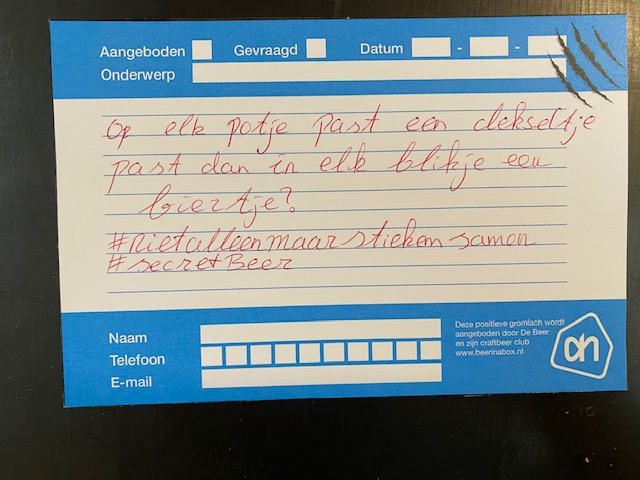 Aangeboden Gevraagd Datum - -
Onderwerp
Op elk potje past een dekseltje
past dan in elk blikje een
biertje?
#nietalleenmaarstiekemsamen
#secretBeer
Naam
Telefoon
E-mail
Deze positieve gromlach wordt
aangeboden door De Beer
en zijn craftbeer club
www.beerinabox.nl
ah